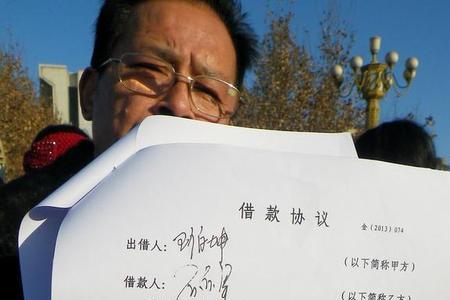 借 款 协 议
金 (2013) 074
出借人:
(以下简称甲方)
借款人:
(以下简称乙方)